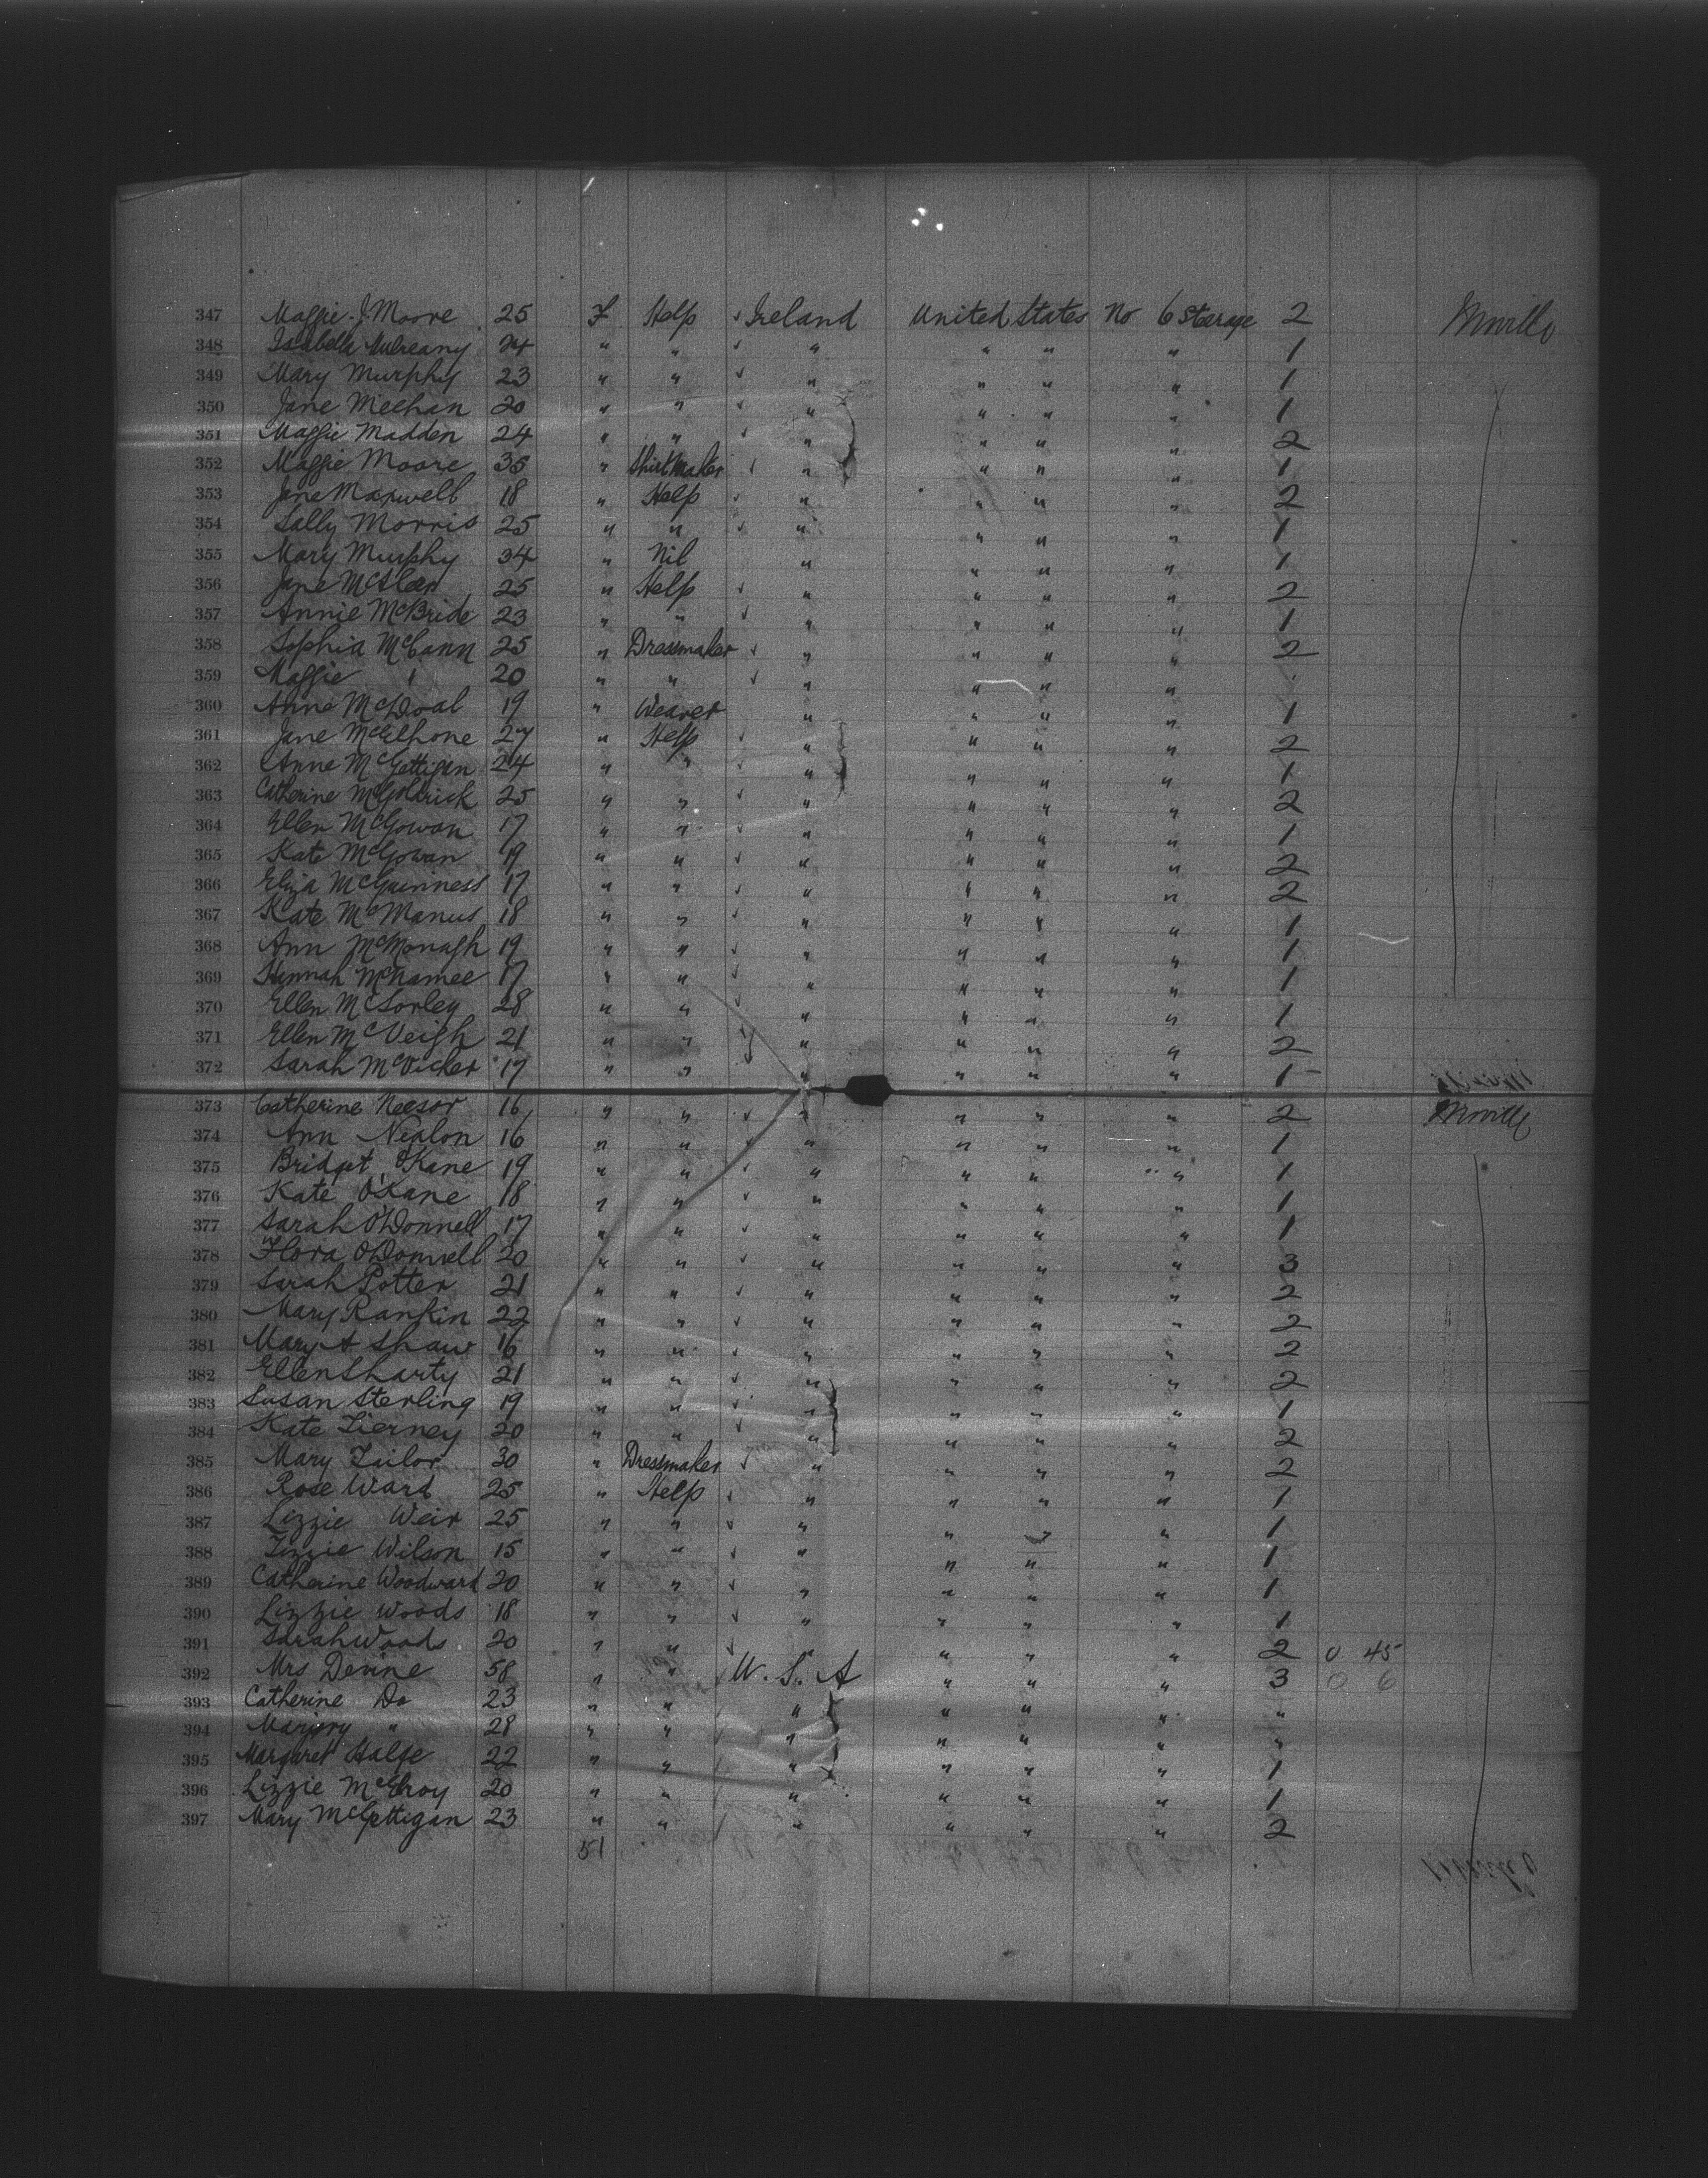 347 Maggie J. Moore 25 F Help Ireland United States No 6 Stearage 2 Moville
348 Isabella Mulreany 24 " " " " " " 1
349 Mary Murphy 23 " " " " " " 1
350 Jane Meehan 20 " " " " " " 1
351 Maggie Madden 24 " " " " " " 2
352 Maggie Moore 35 " Shirtmaker " " " " 1
353 Jane Maxwell 18 " Help " " " " 2
354 Sally Morris 25 " " " " " " 1
355 Mary Murphy 34 " Nil " " " " 1
356 Jane 25 " Help " " " " 2
357 Annie McBride 23 " " " " " " 1
358 Sophia McCann 25 " Dressmaker " " " " 2
359 Maggie " 20 " " " " " "
360 Anne McDoal 19 " Weaver " " " " 1
361 Jane McElhone 27 " Help " " " " 2
362 Anne McGettigan 24 " " " " " " 1
363 Catherine McGoldrick 25 " " " " " " 2
364 Ellen McGowan 17 " " " " " " 1
365 Kate McGowan 19 " " " " " " 2
366 Eliza McGuinness 17 " " " " " " 2
367 Kate McManus 18 " " " " " " 1
368 Ann McMonagh 19 " " " " " " 1
369 Hannah McNamee 17 " " " " " " 1
370 Ellen McSorley 28 " " " " " " 1
371 Ellen McVeigh 21 " " " " " " 2
372 Sarah McVicker 17 " " " " " " 1
373 Catherine Neesor 16 " " " " " " 2 Moville
374 Ann Nealon 16 " " " " " " 1
375 Bridget O'Kane 19 " " " " " " 1
376 Kate O'Kane 18 " " " " " " 1
377 Sarah O'Donnell 17 " " " " " " 1
378 Flora O'Donnell 20 " " " " " " 3
379 Sarah Potter 21 " " " " " " 2
380 Mary Rankin 22 " " " " " " 2
381 Mary A Shaw 16 " " " " " " 2
382 Ellen Sharty 21 " " " " " " 2
383 Susan Sterling 19 " " " " " " 1
384 Kate Tierney 20 " " " " " " 2
385 Mary Tailor 30 " Dressmaker " " " " 2
386 Rose Ward 25 " Help " " " " 1
387 Lizzie Weir 25 " " " " " " 1
388 Lizzie Wilson 15 " " " " " " 1
389 Catherine Woodward 20 " " " " " " 1
390 Lizzie Woods 18 " " " " " " 1
391 Sarah Woods 20 " " " " " " 2 0 45
392 Mrs Devine 58 " " U. S. A " " " 3 0 6
393 Catherine Do 23 " " " " " " "
394 Marjory " 28 " " " " " " "
395 Margaret Halfe 22 " " " " " " 1
396 Lizzie McElroy 20 " " " " " " 1
397 Mary McGettigan 23 " " " " " " 2
51